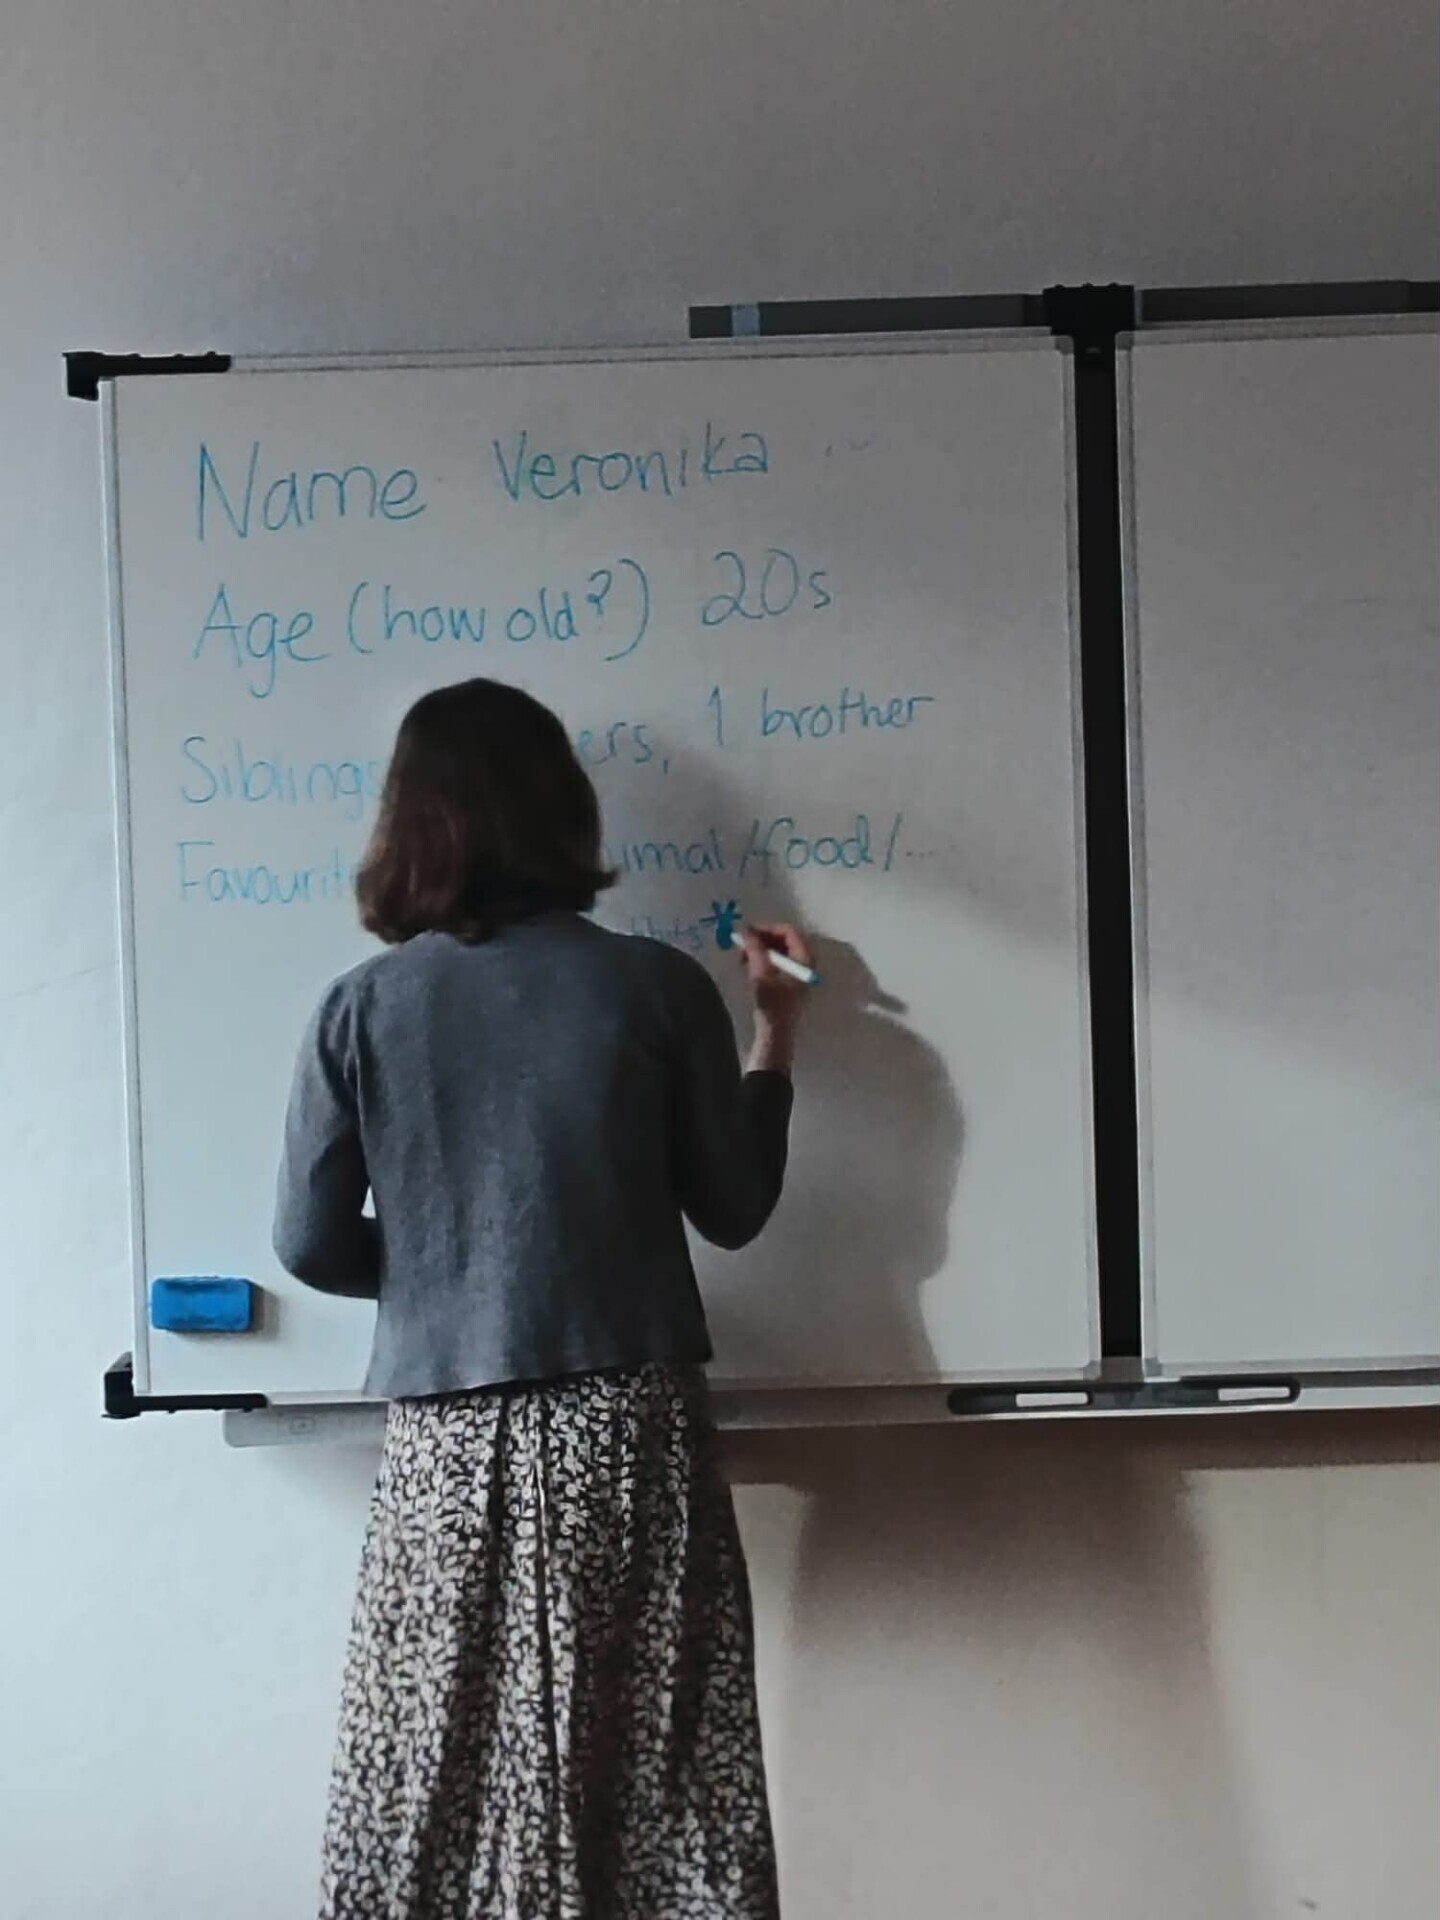 Name Veronika
Age (how old?) 20s
Siblings 1 brother
Favourite /food/...